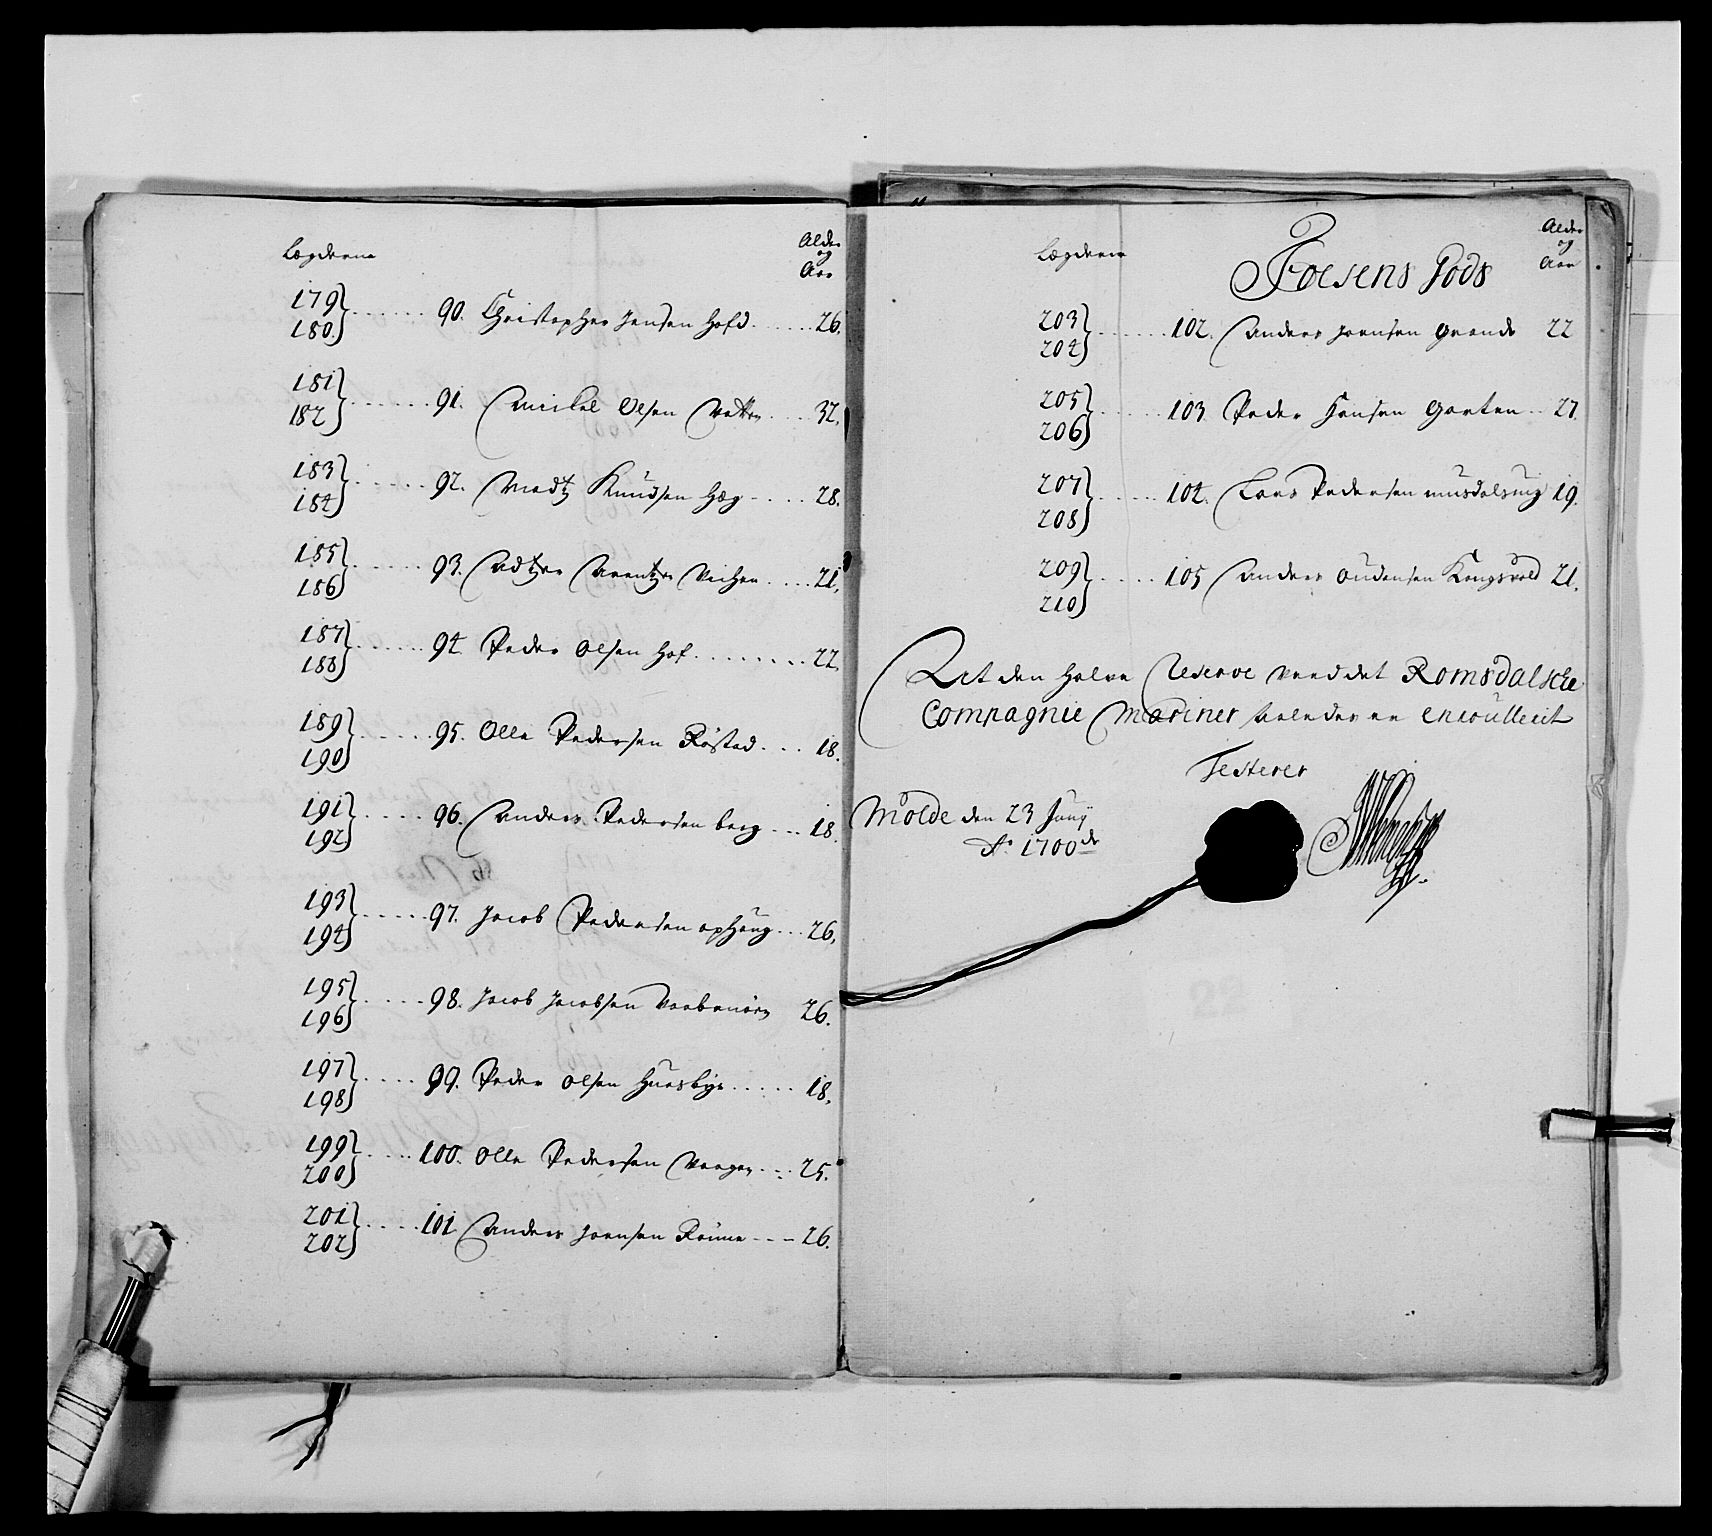 Lægderne
Alder
og
Aar
179
180 90. Christopher Jensen Hofd 26.
181
182 91. Mickel Olsen Vatten 32.
183
184 92. Madtz Knudsen Hæg 28.
185
186 93. Adtzer Arentzen Veiken 21.
187
188 94 Peder Olsen Hof 22.
189
190 95. Olle Pedersen Røstad 18.
191
192 96. Anders Pedersen berg 18
193
194 97. Jacob Pedersen ophoug 26.
195
196 98. Jacob Jacobsen 26.
197
198 99. Peder Olsen Huusbye 18.
199
200 100. Olle Pedersen 25.
201
202 101 Anders Joensen Rønne 26.
Lægderne
Foesens Gods
Alder
og
Aar
203
204 102. Anders Joensen Grande 22
205
206 103 Peder Hansen Garten 27.
207
208 104. Lars Pedersen musdalsvig 19.
209
210 105 Anders Oudensen Kongsvold 21.
At den halve Reserve Vved det Romsdalsche
Compagnie Mariner saaledes er enroullerit
Testerer
Molde den 23 Junij
Ao 1700de